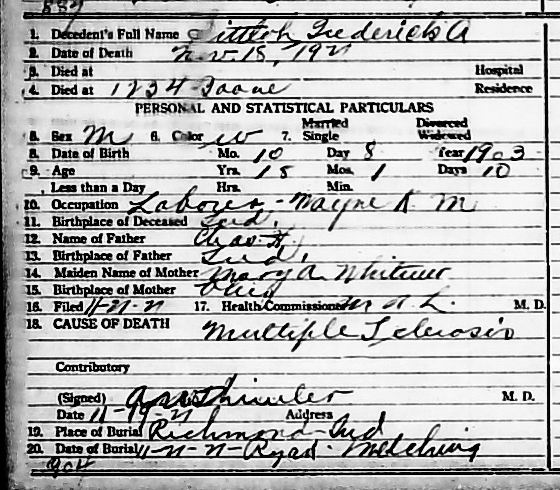 889
1. Decedent's Full Name Frederick A
2. Date of Death Nov. 18, 1921
3. Died at Hospital
4. Died at 1234 Residence
PERSONAL AND STATISTICAL PARTICULARS
Married Divorced
5. Sex M 6. Color W 7. Single Widowed
8. Date of Birth Mo. 10 Day 8 Year 1903
9. Age Yrs. 18 Mos. 1 Days 10
Less than a Day Hrs. Min.
10. Occupation Laborer - Wayne K M
11. Birthplace of Deceased Ind.
12. Name of Father Chas. H.
13. Birthplace of Father Ind.
14. Maiden Name of Mother Mary A Whitmer
15. Birthplace of Mother Ohio
16. Filed 17. Health Commissioner M. D.
18. CAUSE OF DEATH Multiple Sclerosis
Contributory
(Signed) M. D.
Date 11-19-21 Address
19. Place of Burial Richmond Ind
20. Date of Burial
904